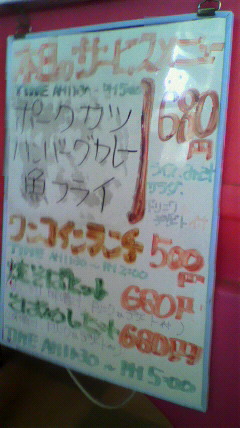 本日のサービスメニュー
TIME AM11:30 ~ PM5:00
ポークカツ
ハンバーグカレー
魚フライ
680円
ライス、みそ汁
サラダ
ドリンク
ワンコインランチ
500円
TIME AM11:30 ~ PM2:00
焼そばセット
680円
そばめしセット 680円
TIME AM11:30 ~ PM5:00